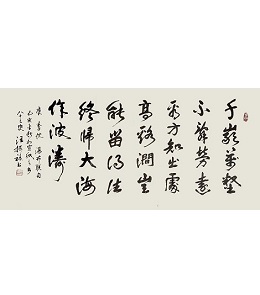 千巖萬壑
不辞勞遠
看方知出處
高谿澗豈
能留得住
終歸大海
作波濤
唐 李忱 瀑布聯句